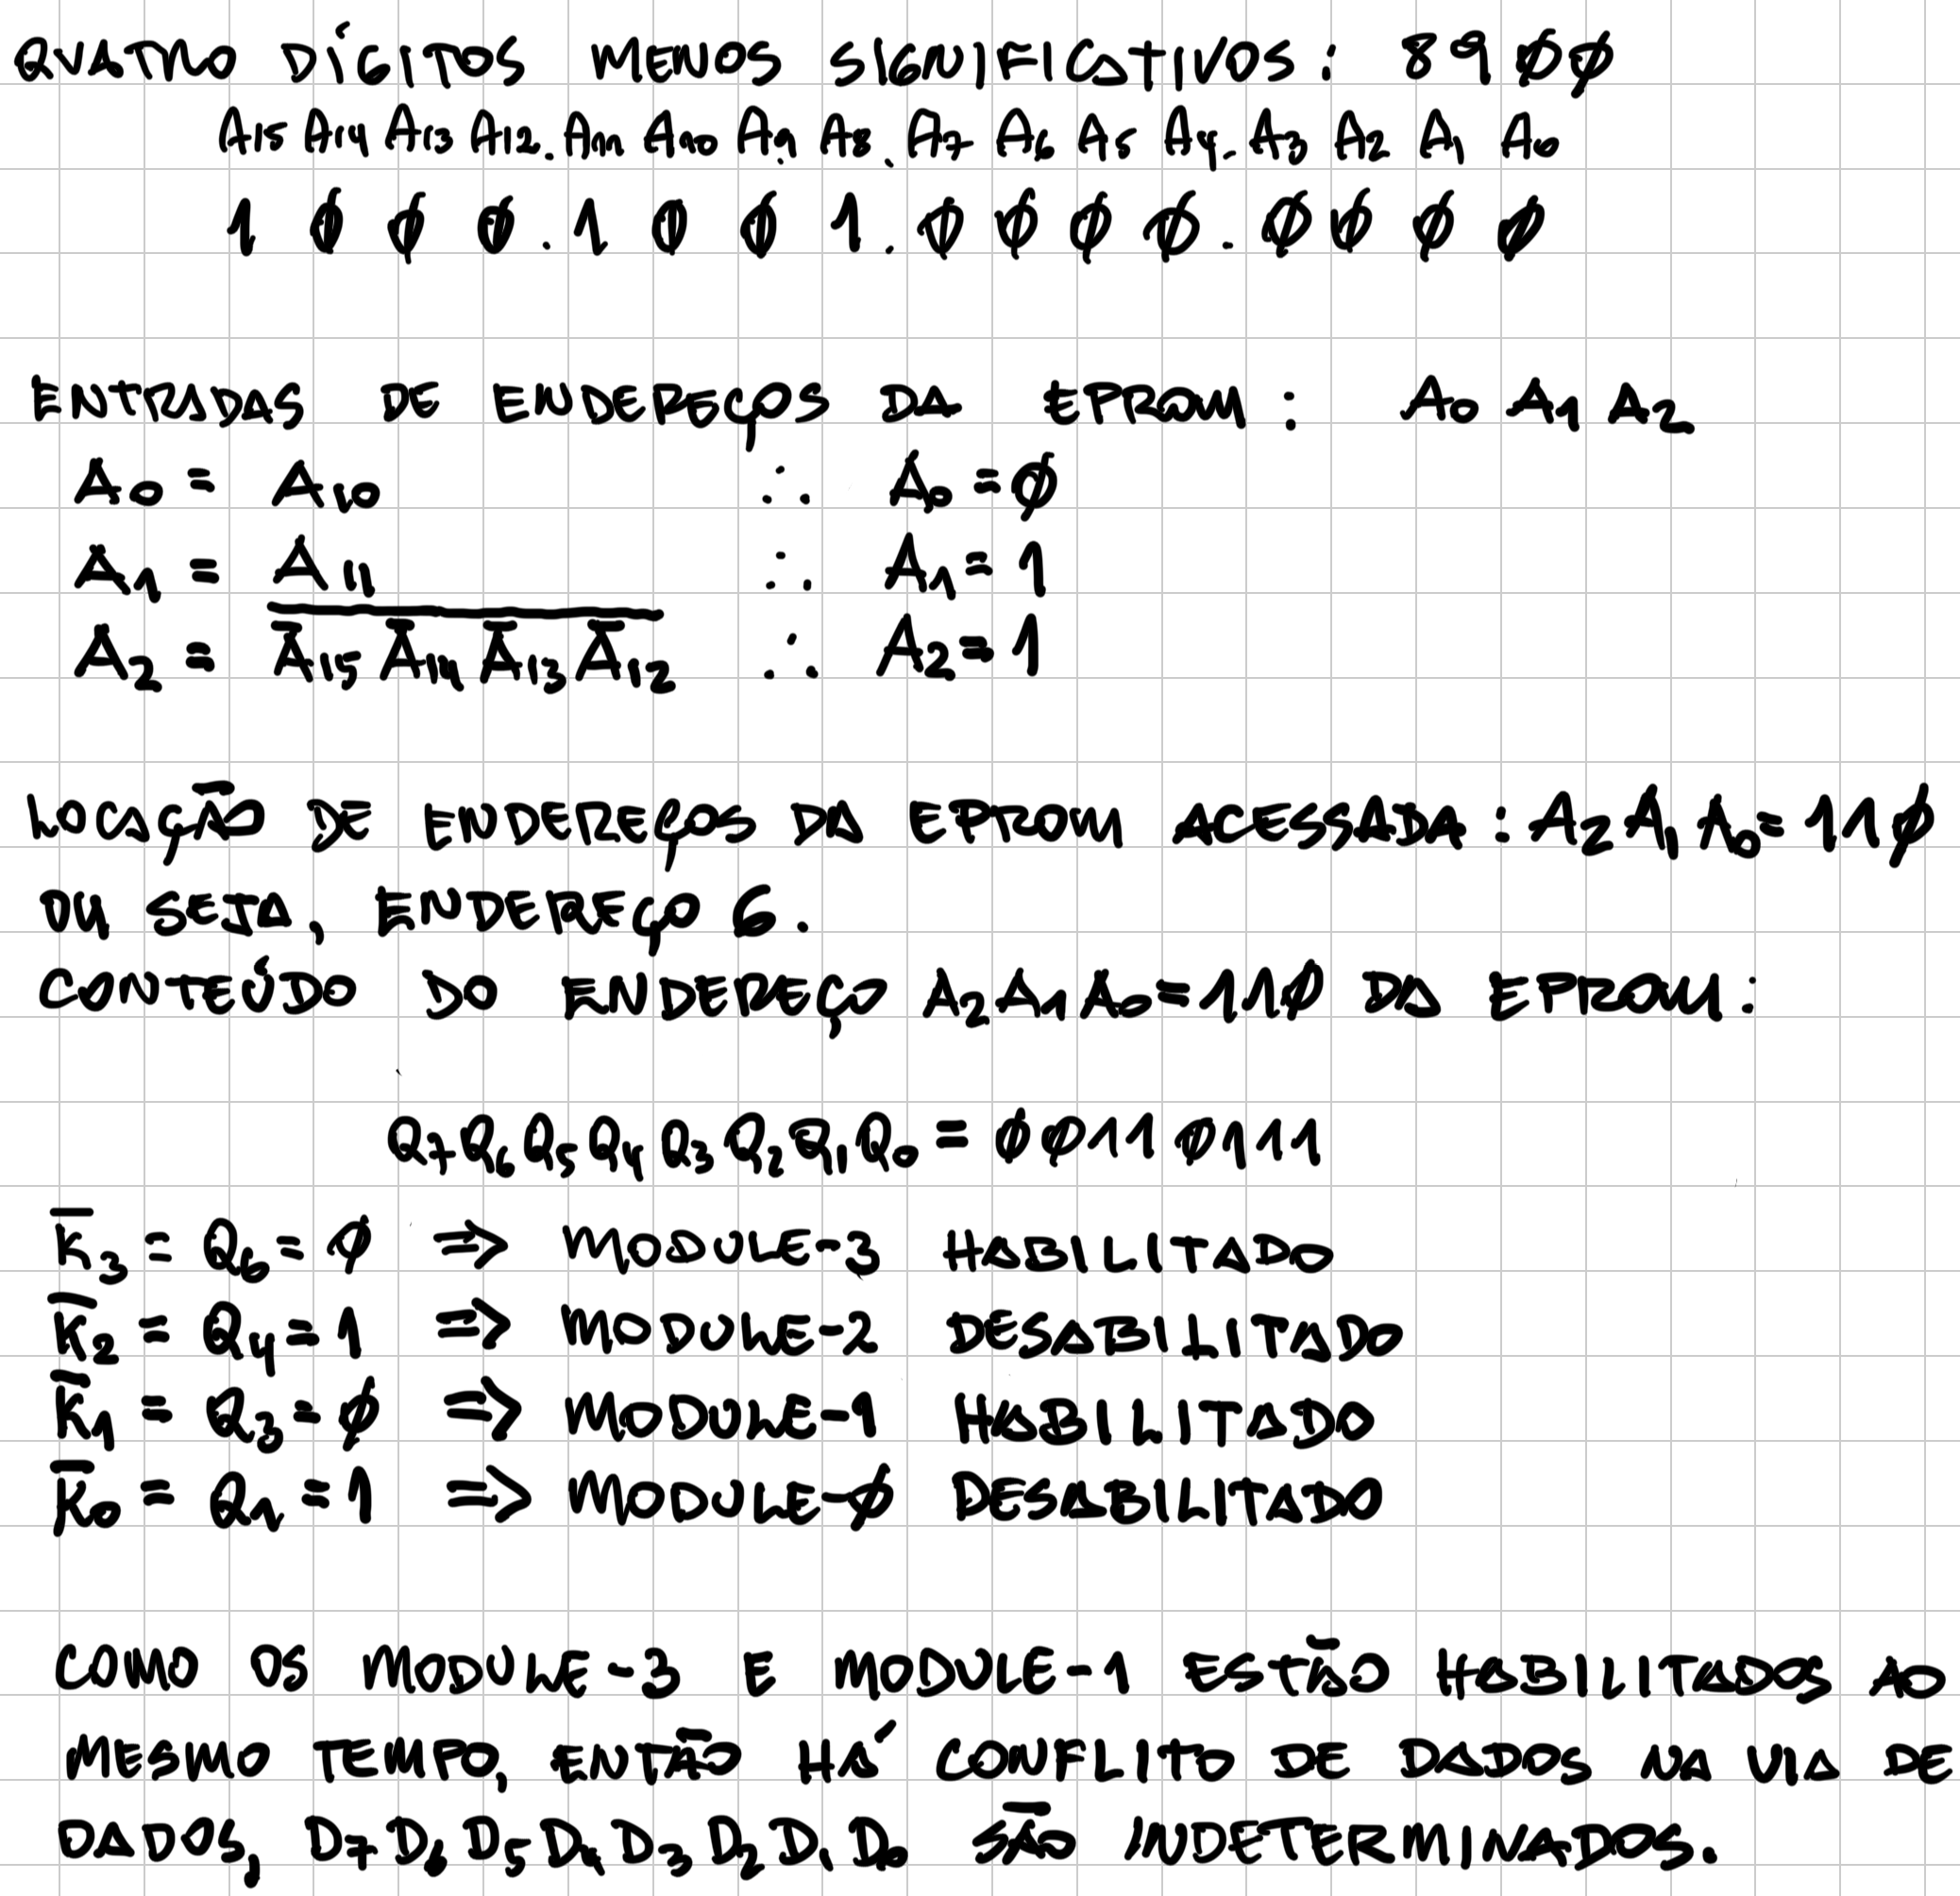 QUATRO DÍGITOS MENOS SIGNIFICATIVOS: 89ØØ
A15 A14 A13 A12. A11 A10 A9 A8. A7 A6 A5 A4. A3 A2 A1 A0
1 Ø Ø Ø . 1 Ø Ø 1 . Ø Ø Ø Ø . Ø Ø Ø Ø
ENTRADAS DE ENDEREÇOS DA EPROM : A0 A1 A2
A0 = A10 ∴ A0 = Ø
A1 = A11 ∴ A1 = 1
A2 = \overline{Ā15 Ā14 Ā13 Ā12} ∴ A2 = 1
LOCAÇÃO DE ENDEREÇOS DA EPROM ACESSADA : A2 A1 A0 = 11Ø
OU SEJA, ENDEREÇO 6.
CONTEÚDO DO ENDEREÇO A2 A1 A0 = 11Ø DA EPROM :
Q7 Q6 Q5 Q4 Q3 Q2 Q1 Q0 = ØØ11Ø111
K̄3 = Q6 = Ø => MODULE-3 HABILITADO
K̄2 = Q4 = 1 => MODULE-2 DESABILITADO
K̄1 = Q3 = Ø => MODULE-1 HABILITADO
K̄0 = Q1 = 1 => MODULE-Ø DESABILITADO
COMO OS MODULE-3 E MODULE-1 ESTÃO HABILITADOS AO
MESMO TEMPO, ENTÃO HÁ CONFLITO DE DADOS NA VIA DE
DADOS, D7 D6 D5 D4 D3 D2 D1 D0 SÃO INDETERMINADOS.